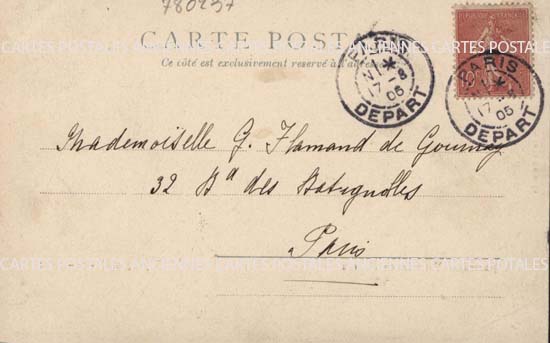 780237
CARTE POSTALE
Ce côté est exclusivement réservé à l'adresse
PARIS
17 - 8
05
DEPART
PARIS
17
05
DEPART
10
Mademoiselle G. Flamand de Gournay
32 Bd des Batignolles
Paris
CARTES POSTALES ANCIENNES CARTES POSTALES ANCIENNES CARTES POSTALES
CARTES POSTALES ANCIENNES CARTES POSTALES ANCIENNES CARTES POSTALES